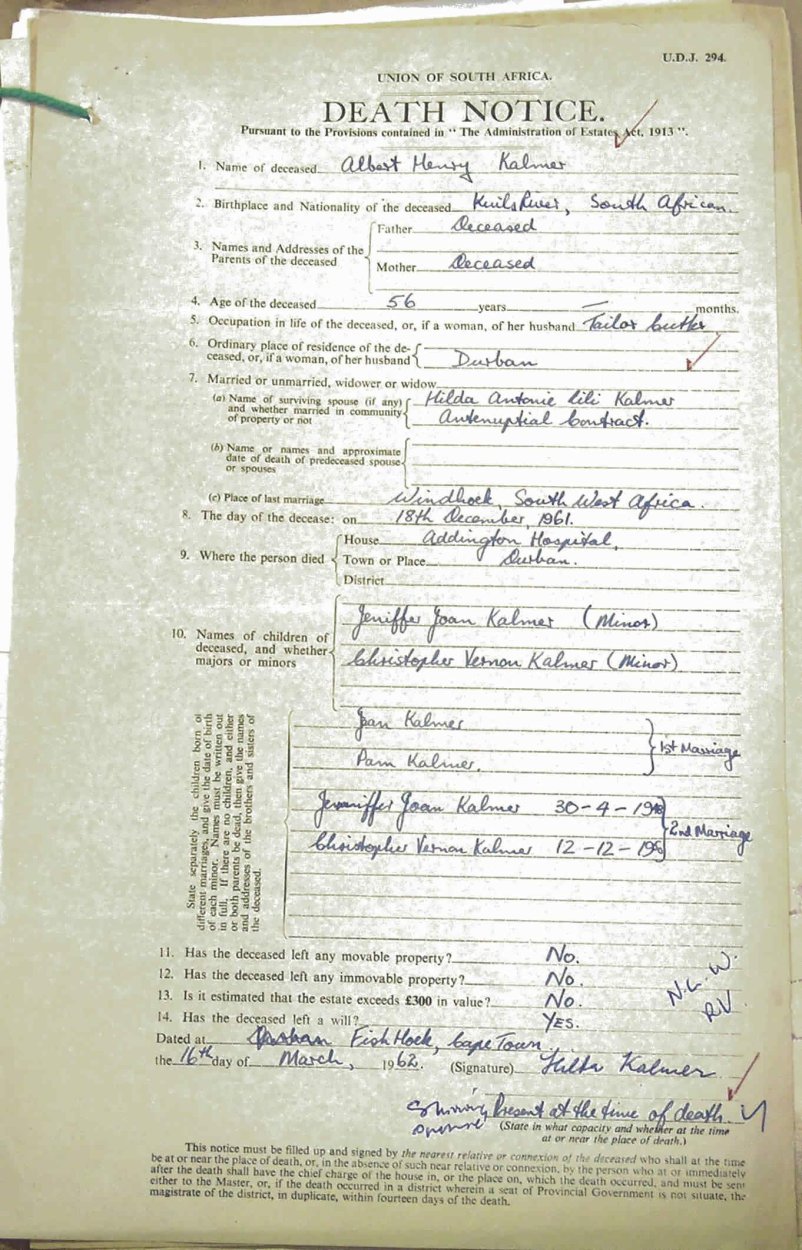 U.D.J. 294.
UNION OF SOUTH AFRICA.
DEATH NOTICE.
Pursuant to the Provisions contained in "The Administration of Estates Act, 1913".
1. Name of deceased Albert Henry Kalmer
2. Birthplace and Nationality of the deceased Kuils River, South African.
3. Names and Addresses of the Parents of the deceased
Father Deceased
Mother Deceased
4. Age of the deceased 56 years — months.
5. Occupation in life of the deceased, or, if a woman, of her husband Tailor Cutter
6. Ordinary place of residence of the deceased, or, if a woman, of her husband Durban
7. Married or unmarried, widower or widow
(a) Name of surviving spouse (if any) and whether married in community of property or not
Hilda Antonie Lili Kalmer
Antenuptial Contract.
(b) Name or names and approximate date of death of predeceased spouse or spouses
(c) Place of last marriage Windhoek, South West Africa.
8. The day of the decease: on 18th December, 1961.
9. Where the person died
House Addington Hospital,
Town or Place Durban.
District
10. Names of children of deceased, and whether majors or minors
Jeniffer Joan Kalmer (Minor)
Christopher Vernon Kalmer (Minor)
State separately the children born of different marriages, and give the date of birth of each minor. Names must be written out in full. If there are no children, and either or both parents be dead, then give the names and addresses of the brothers and sisters of the deceased.
Joan Kalmer
Pam Kalmer.
1st Marriage
Jeniffer Joan Kalmer 30-4-19
Christopher Vernon Kalmer 12-12-19
2nd Marriage
11. Has the deceased left any movable property? No.
12. Has the deceased left any immovable property? No.
13. Is it estimated that the estate exceeds £300 in value? No.
14. Has the deceased left a will? YES.
N.L.W.
RV
Dated at Fish Hoek, Cape Town
the 16th day of March, 1962. (Signature) Hilda Kalmer
Surviving Spouse
Present at the time of death.
(State in what capacity and whether at the time
at or near the place of death.)
This notice must be filled up and signed by the nearest relative or connexion of the deceased who shall at the time
be at or near the place of death, or, in the absence of such near relative or connexion, by the person who at or immediately
after the death shall have the chief charge of the house in, or the place on, which the death occurred, and must be sent
either to the Master, or, if the death occurred in a district wherein a seat of Provincial Government is not situate, the
magistrate of the district, in duplicate, within fourteen days of the death.